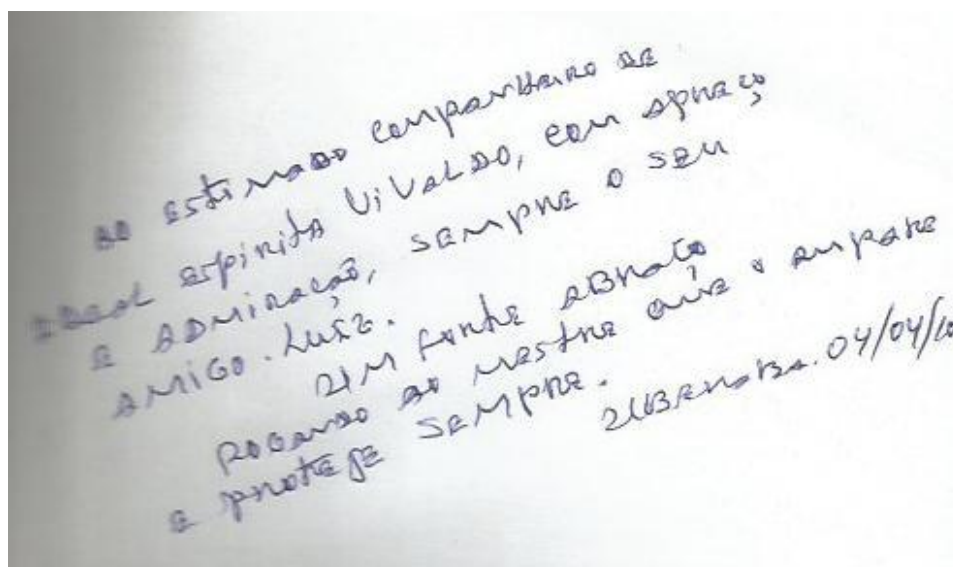 ao estimado companheiro de
ideal espirita Vivaldo, com apreço
e admiração, sempre o seu
amigo. Luiz.
um forte abraço
rogando ao mestre que o ampare
e proteje sempre.
Uberaba. 04/04/